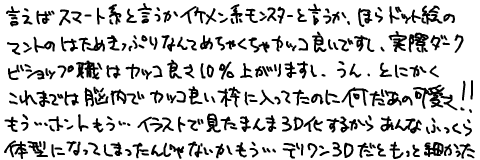 言えばスマート系と言うかイケメン系モンスターと言うか、ほらドット絵の
マントのはためきっぷりなんてめちゃくちゃカッコ良いですし、実際ダーク
ビショップ職はカッコ良さ10%上がりますし、うん、とにかく
これまでは脳内でカッコ良い枠に入ってたのに何だあの可愛さ!!
もう…ホントもう…イラストで見たまんま3D化するからあんなふっくら
体型になってしまったんじゃないかもう…テリワン3Dだともっと細かった